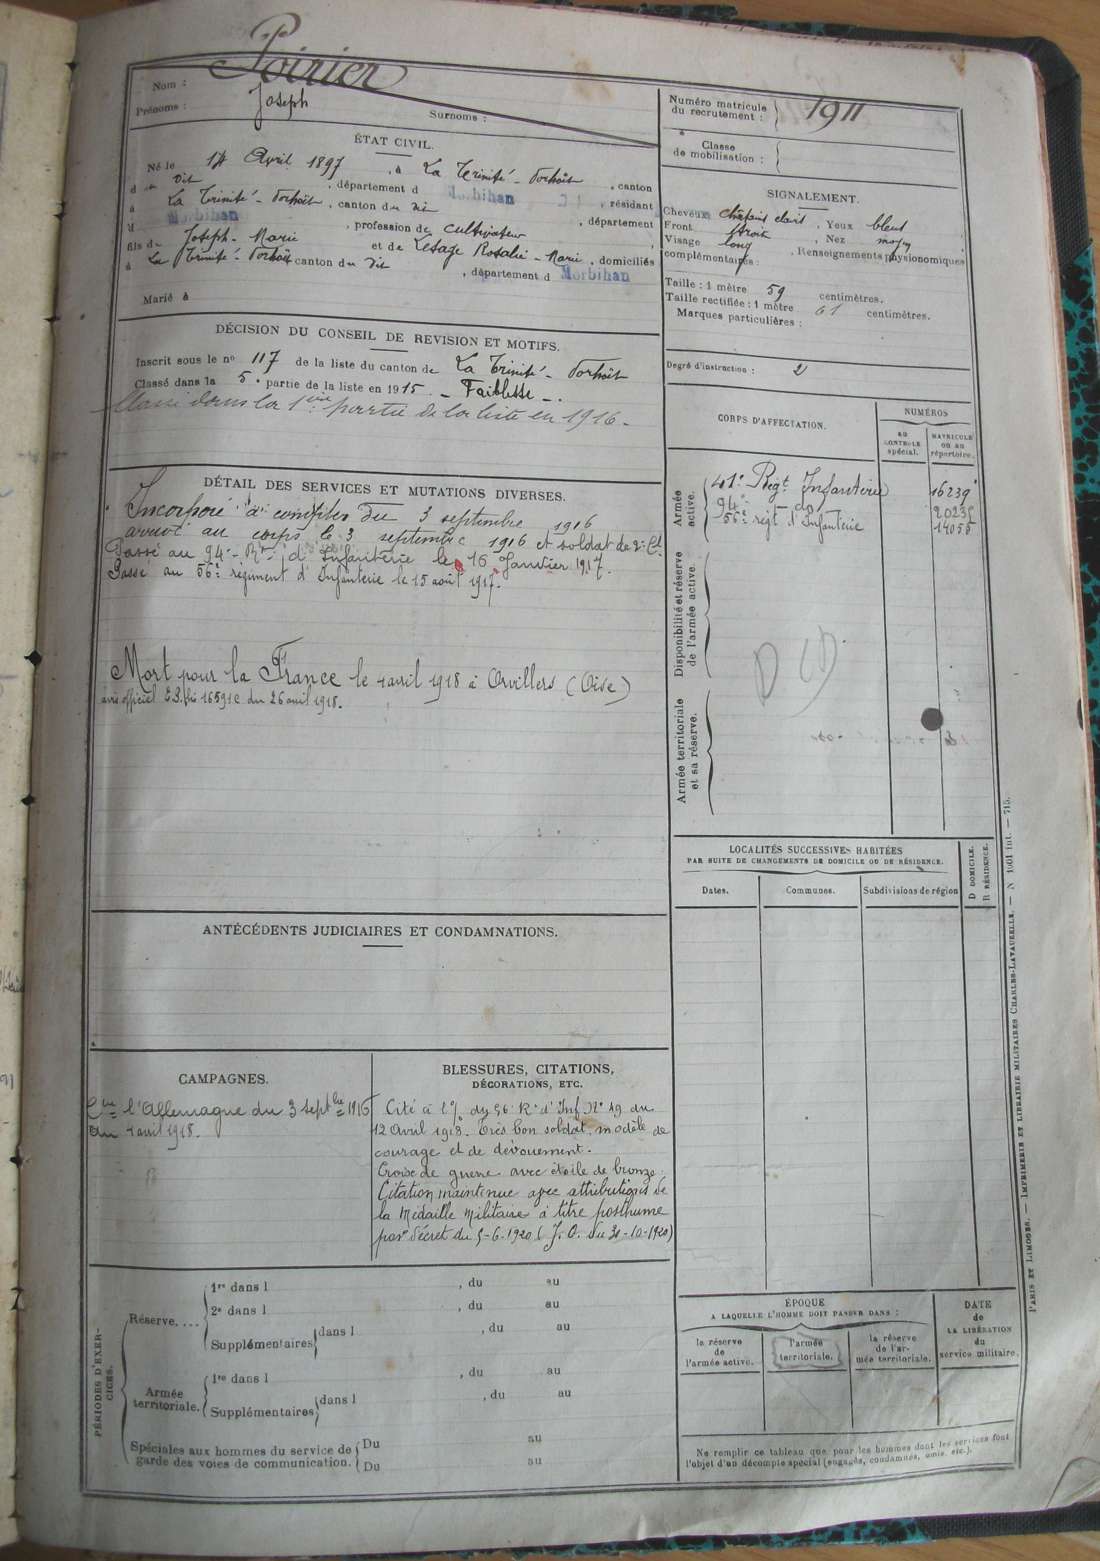 Nom : Poirier
Prénoms : Joseph Surnoms :
Numéro matricule du recrutement : 1911
Classe de mobilisation :
ÉTAT CIVIL.
Né le 14 Avril 1897, à La Trinité-Porhoët, canton
du dit, département d Morbihan, résidant
à La Trinité-Porhoët, canton du dit, département
d Morbihan, profession de cultivateur
fils de Joseph-Marie et de Lesage Rosalie-Marie, domiciliés
à La Trinité-Porhoët canton du dit, département d Morbihan
Marié à
SIGNALEMENT.
Cheveux châtain clair, Yeux bleus
Front étroit, Nez moyen
Visage long, Renseignements physionomiques
complémentaires :
Taille : 1 mètre 59 centimètres.
Taille rectifiée : 1 mètre 61 centimètres.
Marques particulières :
Degré d'instruction : 2
DÉCISION DU CONSEIL DE REVISION ET MOTIFS.
Inscrit sous le nº 117 de la liste du canton de La Trinité-Porhoët
Classé dans la 5e partie de la liste en 1915 - Faiblesse -.
Classé dans la 1ère partie de la liste en 1916.
DÉTAIL DES SERVICES ET MUTATIONS DIVERSES.
Incorporé à compter du 3 septembre 1916
arrivé au corps le 3 septembre 1916 et soldat de 2e Cl.
Passé au 94e Rt d'Infanterie le 16 Janvier 1917.
Passé au 56e régiment d'Infanterie le 15 août 1917.
Mort pour la France le 4 avril 1918 à Orvillers (Oise)
avis officiel 16591 du 26 avril 1918.
CORPS D'AFFECTATION.
NUMÉROS
AU CONTROLE spécial.
MATRICULE OU AU répertoire.
Armée active.
41e Régt Infanterie 16239
94e do 20235
56e régt d'Infanterie 14055
Disponibilité et réserve de l'armée active.
DCD
Armée territoriale et sa réserve.
LOCALITÉS SUCCESSIVES HABITÉES
PAR SUITE DE CHANGEMENTS DE DOMICILE OU DE RÉSIDENCE.
Dates.
Communes.
Subdivisions de région
D DOMICILE.
R RÉSIDENCE.
ANTÉCÉDENTS JUDICIAIRES ET CONDAMNATIONS.
CAMPAGNES.
Cne l'Allemagne du 3 septbre 1916
au 4 avril 1918.
BLESSURES, CITATIONS,
DÉCORATIONS, ETC.
Cité à l'O. du 56 Rt d'Inf Nº 49 du
12 Avril 1918. Très bon soldat, modèle de
courage et de dévouement.
Croix de guerre avec étoile de bronze.
Citation maintenue avec attribution de
la Médaille Militaire à titre posthume
par décret du 5-6-1920 (J.O. du 30-10-1920)
PÉRIODES D'EXERCICES.
Réserve....
1re dans l , du au
2e dans l , du au
Supplémentaires dans l , du au
Armée territoriale.
1re dans l , du au
Supplémentaires dans l , du au
Spéciales aux hommes du service de garde des voies de communication.
Du au
Du au
ÉPOQUE
A LAQUELLE L'HOMME DOIT PASSER DANS :
la réserve de l'armée active.
l'armée territoriale.
la réserve de l'armée territoriale.
DATE de LA LIBÉRATION du service militaire.
Ne remplir ce tableau que pour les hommes dont les services font
l'objet d'un décompte spécial (engagés, condamnés, omis, etc.).
PARIS ET LIMOGES. — IMPRIMERIE ET LIBRAIRIE MILITAIRES CHARLES-LAVAUZELLE. — N 1001 int. — 715.